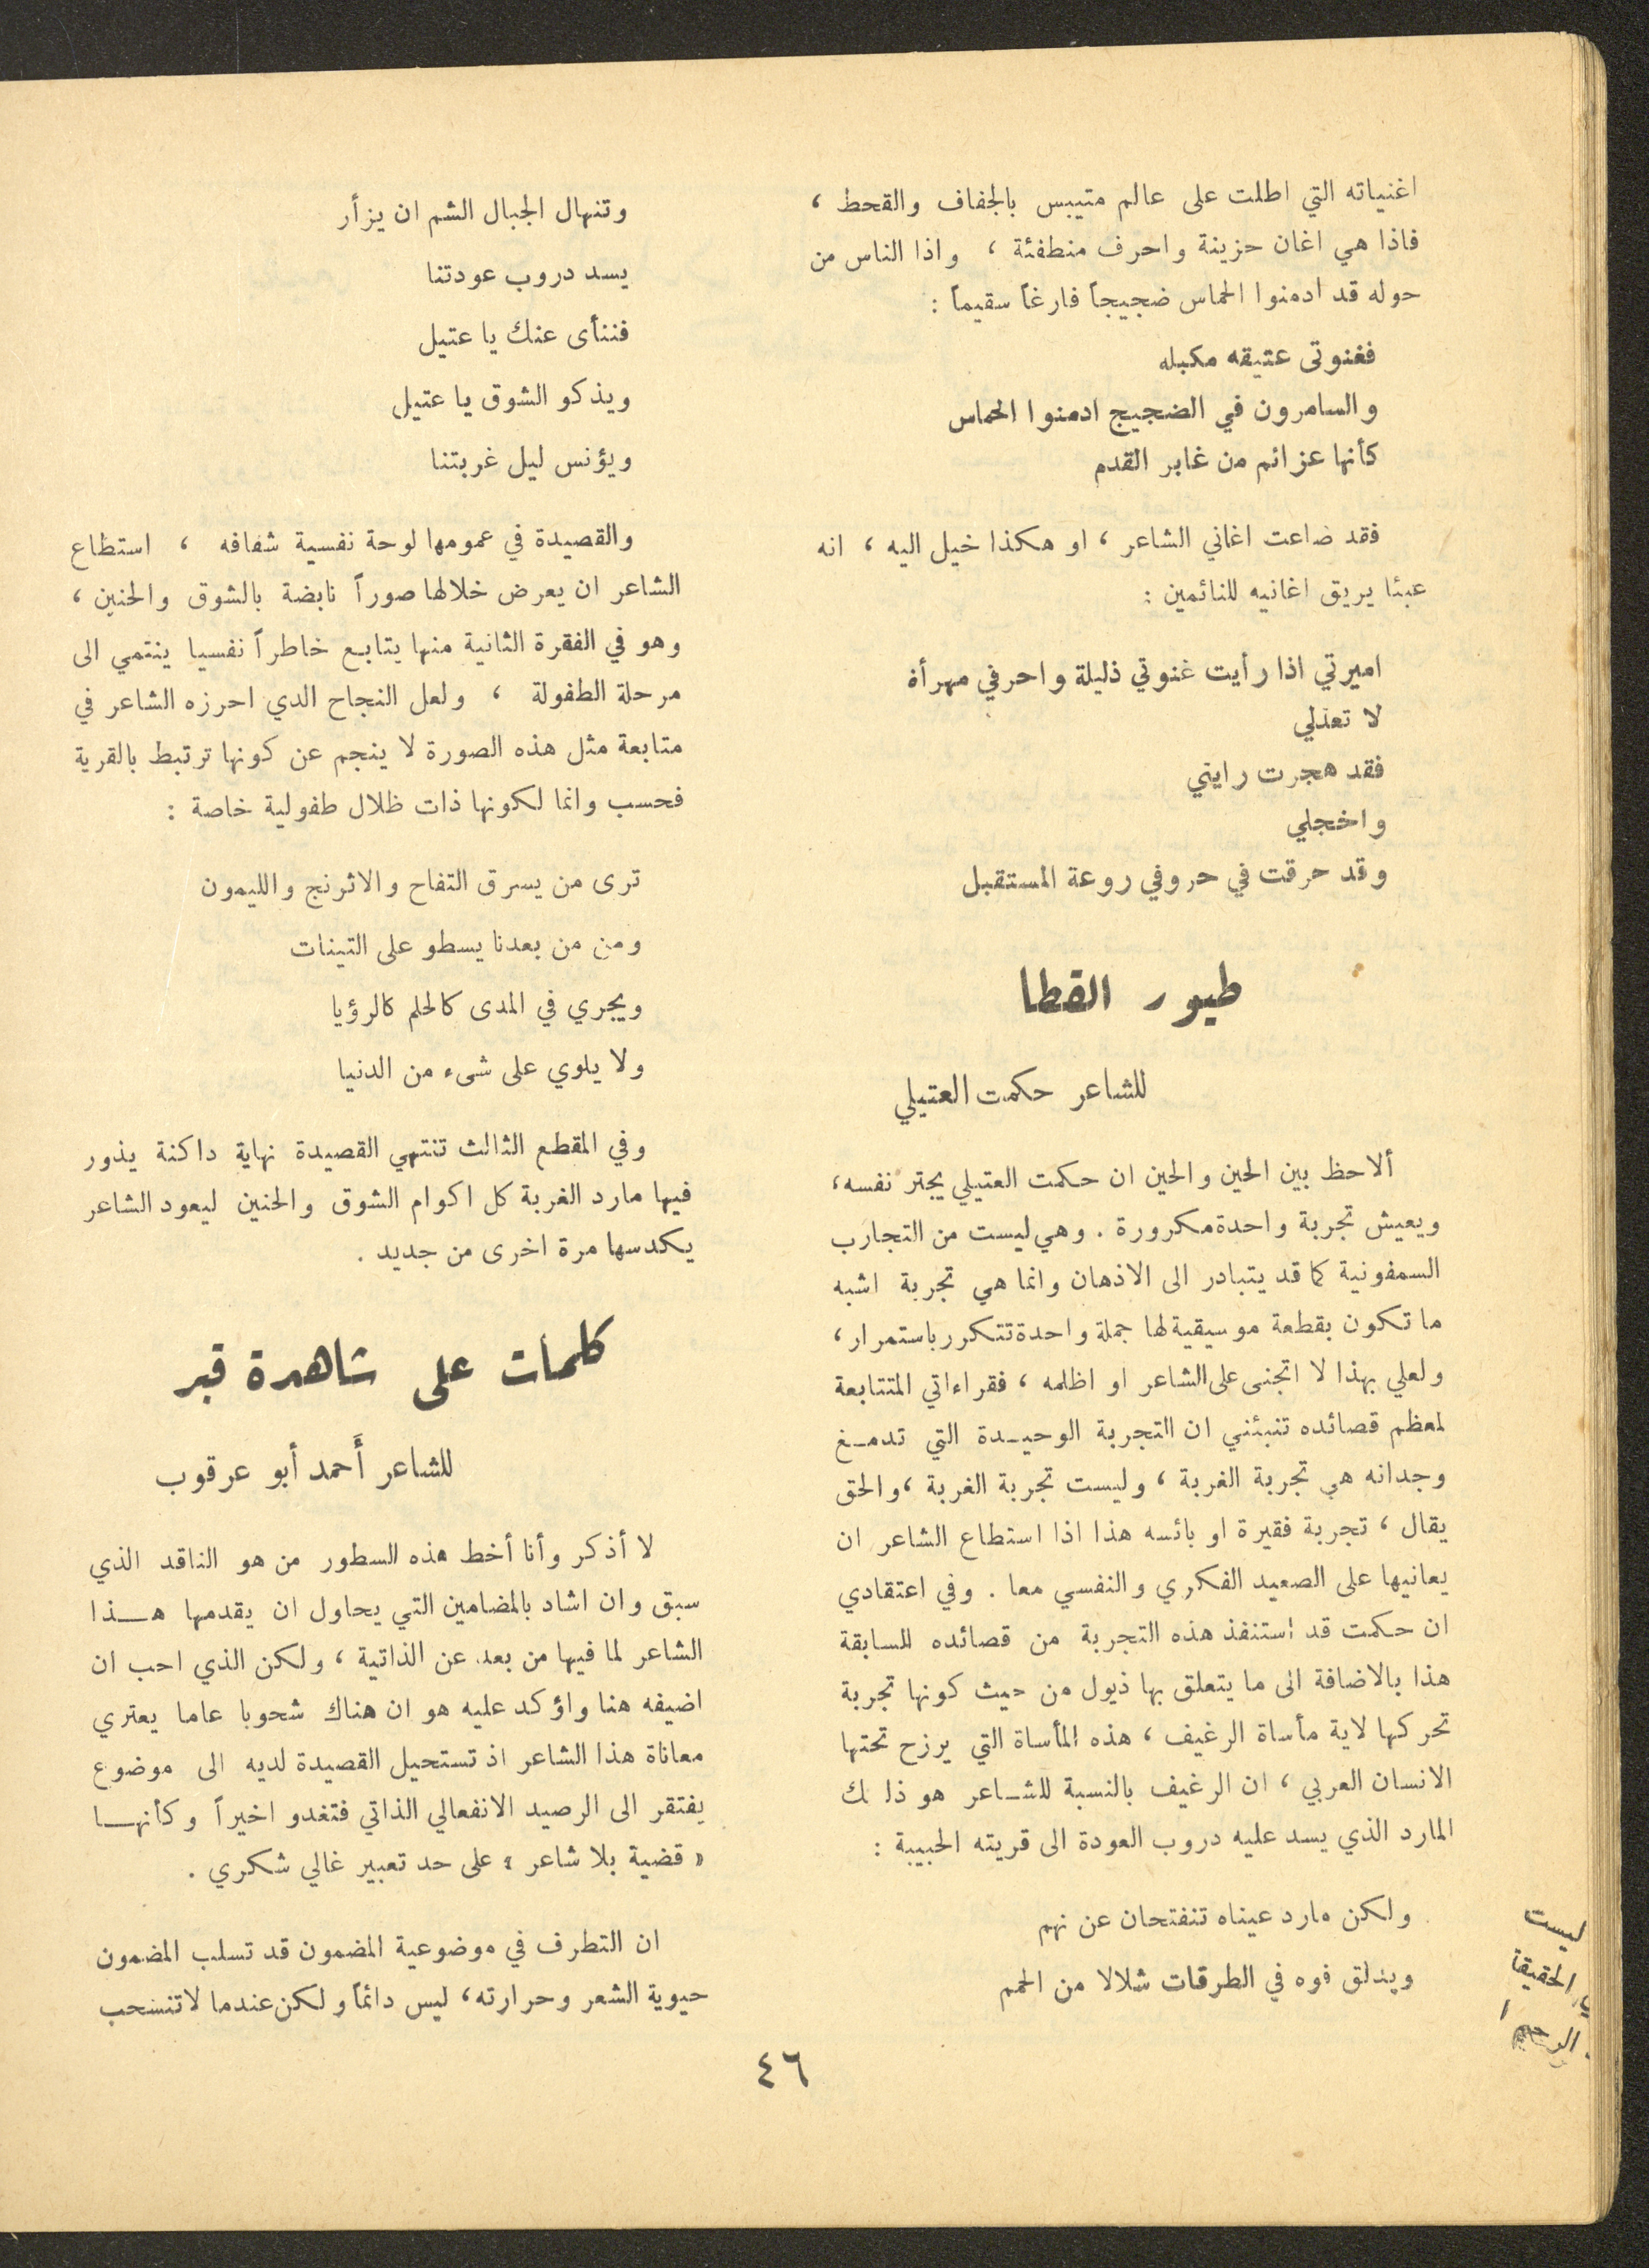 اغنياته التي اطلت على عالم متيبس بالجفاف والقحط ،
فاذا هي اغان حزينة واحرف منطفئة ، واذا الناس من
حوله قد ادمنوا الحماس ضجيجاً فارغاً سقيماً :
فغنوتى عتيقه مكبله
والسامرون في الضجيج ادمنوا الحماس
كأنها عزائم من غابر القدم
فقد ضاعت اغاني الشاعر ، او هكذا خيل اليه ، انه
عبثا يريق اغانيه للنائمين :
اميرتي اذا رأيت غنوتي ذليلة واحرفي مهرأة
لا تعذلي
فقد هجرت رايتي
واخجلي
وقد حرقت في حروفي روعة المستقبل
طيور القطا
للشاعر حكمت العتيلي
ألاحظ بين الحين والحين ان حكمت العتيلي يجتر نفسه،
ويعيش تجربة واحدة مكرورة . وهي ليست من التجارب
السمفونية كما قد يتبادر الى الاذهان وانما هي تجربة اشبه
ما تكون بقطعة موسيقية لها جملة واحدة تتكرر باستمرار ،
ولعلي بهذا لا اتجنى على الشاعر او اظلمه ، فقراءاتي المتتابعة
لمعظم قصائده تنبئني ان التجربة الوحيـدة التي تدمـغ
وجدانه هي تجربة الغربة ، وليست تجربة الغربة ، والحق
يقال ، تجربة فقيرة او بائسه هذا اذا استطاع الشاعر ان
يعانيها على الصعيد الفكري والنفسي معا . وفي اعتقادي
ان حكمت قد استنفذ هذه التجربة من قصائده السابقة
هذا بالاضافة الى ما يتعلق بها ذيول من حيث كونها تجربة
تحركها لاية مأساة الرغيف ، هذه المأساة التي يرزح تحتها
الانسان العربي ، ان الرغيف بالنسبة للشـاعر هو ذلك
المارد الذي يسد عليه دروب العودة الى قريته الحبيبة :
ولكن مارد عيناه تنفتحان عن نهم
ويندلق فوه في الطرقات شلالا من الحمم
وتنهال الجبال الشم ان يزأر
يسد دروب عودتنا
فننأى عنك يا عتيل
ويذكو الشوق يا عتيل
ويؤنس ليل غربتنا
والقصيدة في عمومها لوحة نفسية شفافه ، استطاع
الشاعر ان يعرض خلالها صوراً نابضة بالشوق والحنين ،
وهو في الفقرة الثانية منها يتابع خاطراً نفسيا ينتمي الى
مرحلة الطفولة ، ولعل النجاح الدي احرزه الشاعر في
متابعة مثل هذه الصورة لا ينجم عن كونها ترتبط بالقرية
فحسب وانما لكونها ذات ظلال طفولية خاصة :
ترى من يسرق التفاح والاثرنج والليمون
ومن من بعدنا يسطو على التينات
ويجري في المدى كالحلم كالرؤيا
ولا يلوي على شىء من الدنيا
وفي المقطع الثالث تنتهي القصيدة نهاية داكنة يذور
فيها مارد الغربة كل اكوام الشوق والحنين ليعود الشاعر
يكدسها مرة اخرى من جديد .
كلمات على شاهدة قبر
للشاعر أَحمد أبو عرقوب
لا أذكر وأنا أخط هذه السطور من هو الناقد الذي
سبق وان اشاد بالمضامين التي يحاول ان يقدمها هـذا
الشاعر لما فيها من بعد عن الذاتية ، ولكن الذي احب ان
اضيفه هنا واؤكد عليه هو ان هناك شحوبا عاما يعتري
معاناة هذا الشاعر اذ تستحيل القصيدة لديه الى موضوع
يفتقر الى الرصيد الانفعالي الذاتي فتغدو اخيراً وكأنهـا
« قضية بلا شاعر » على حد تعبير غالي شكري .
ان التطرف في موضوعية المضمون قد تسلب المضمون
حيوية الشعر وحرارته، ليس دائماً ولكن عندما لاتنسحب
٤٦
ليست
الحقيقة